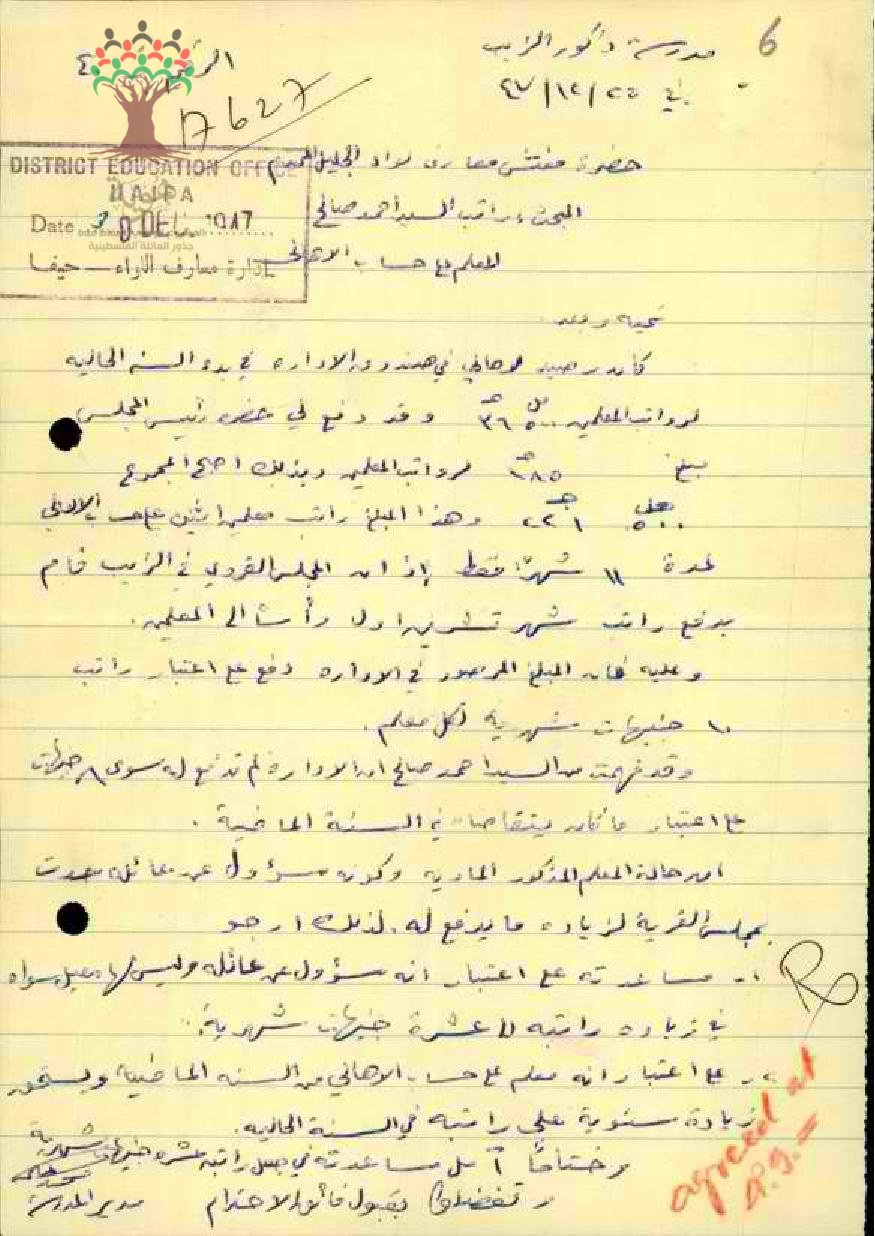 6
مدرسة ذكور الزيب
في ٢٥/١٢/٤٧
الرقم ٤
17627
DISTRICT EDUCATION OFFICE
HAIFA
Date 30 DEC 1947
إدارة معارف اللواء — حيفا
جذور العائلة الفلسطينية
حضرة مفتش معارف لواء الجليل المحترم
المبحث: راتب السيد احمد صالح
المعلم على حساب الاهالي
تحية وبعد
كان رصيد الاهالي في صندوق الادارة في بدء السنة الحالية
لرواتب المعلمين ٥٠٠ مل ٣٦ ج وقد دفع لي حضرة رئيس المجلس
مبلغ ١٨٥ ج لرواتب المعلمين وبذلك اصبح المجموع
٥٠٠ مل ٢٢١ ج وهذا المبلغ راتب معلمين اثنين على حساب الاهالي
لمدة ١١ شهرًا فقط إذ ان المجلس القروي في الزيب قام
بدفع راتب شهر تشرين اول رأسا الى المعلمين.
وعليه فان المبلغ المرصود في الادارة دفع على اعتبار راتب
١٠ جنيهات شهرية لكل معلم.
وقد فهمت من السيد احمد صالح ان الادارة لم تدفع له سوى ٨ جنيهات
على اعتبار ما كان يتقاضاه في السنة الماضية.
ان حالة المعلم المذكور المادية وكونه مسؤول عن عائلة حدت
بمجلس القرية لزيادة ما يدفع له. لذلك ارجو
١- مساعدته على اعتبار انه مسؤول عن عائلة وليس لها معيل سواه
في زيادة راتبه الى عشرة جنيهات شهرية.
٢- على اعتبار انه معلم على حساب الاهالي من السنة الماضية ويستحق
زيادة سنوية على راتبه في السنة الحالية.
وختامًا آمل مساعدته في جعل راتبه عشرة جنيهات شهرية
وتفضلوا بقبول فائق الاحترام مدير المدرسة
agreed at